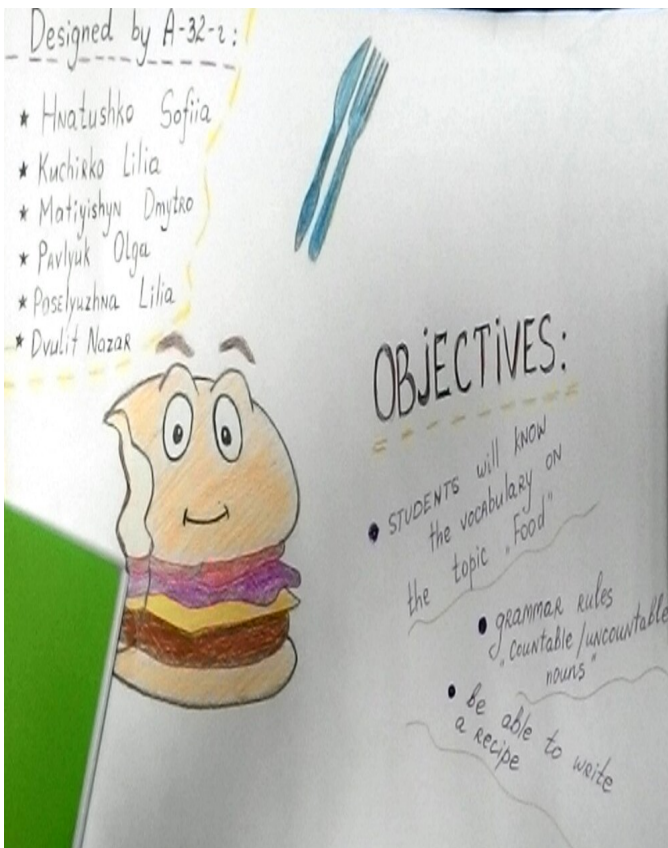 Designed by A-32-2:
★ Hnatushko Sofiia
★ Kuchirko Lilia
★ Matiyishyn Dmytro
★ Pavlyuk Olga
★ Poselyuzhna Lilia
★ Dvulit Nazar
OBJECTIVES:
• STUDENTS will know
the vocabulary on
the topic „Food"
• grammar rules
„countable/uncountable
nouns"
• be able to write
a recipe